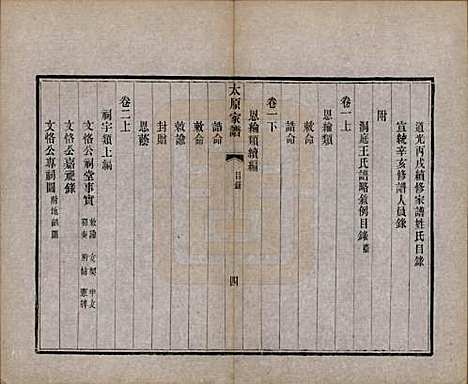 道光丙戌續修家譜姓氏目錄
宣統辛亥修譜人員錄
附
洞庭王氏譜略敘例目錄
卷一上
恩綸類
敕命
誥命
卷一下
恩綸類續編
太原家譜
目錄
四
誥命
敕命
敕諭
封贈
恩蔭
卷二上
祠宇類上編
文恪公祠堂事實 敕諭 文契 申文
文恪公嘉祀錄
文恪公專祠圖